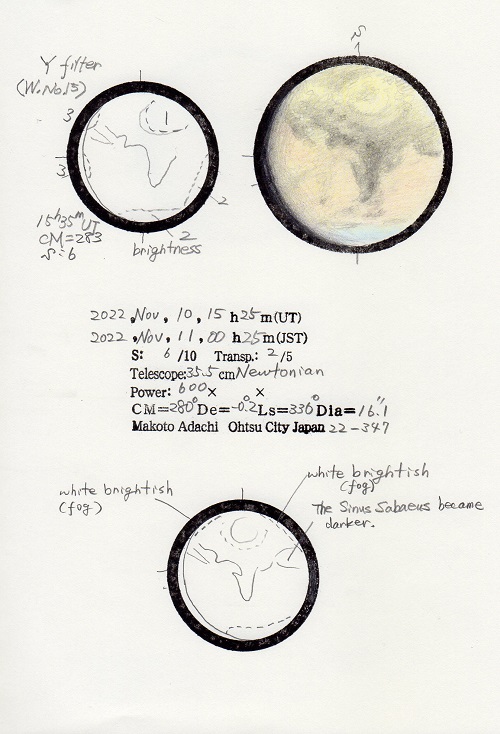 Y filter
(W.No.15)
3
1
3
2
2
15h35m UT
CM=283
S=6
brightness
S
2022, Nov, 10, 15 h25m(UT)
2022, Nov, 11, 00 h25m(JST)
S: 6 /10 Transp.: 2/5
Telescope:35.5 cm Newtonian
Power: 600× ×
CM=280° De=-0.2° Ls=336° Dia=16.1"
Makoto Adachi Ohtsu City Japan 22-347
white brightish
(fog)
white brightish
(fog)
The Sinus Sabaeus became
darker.